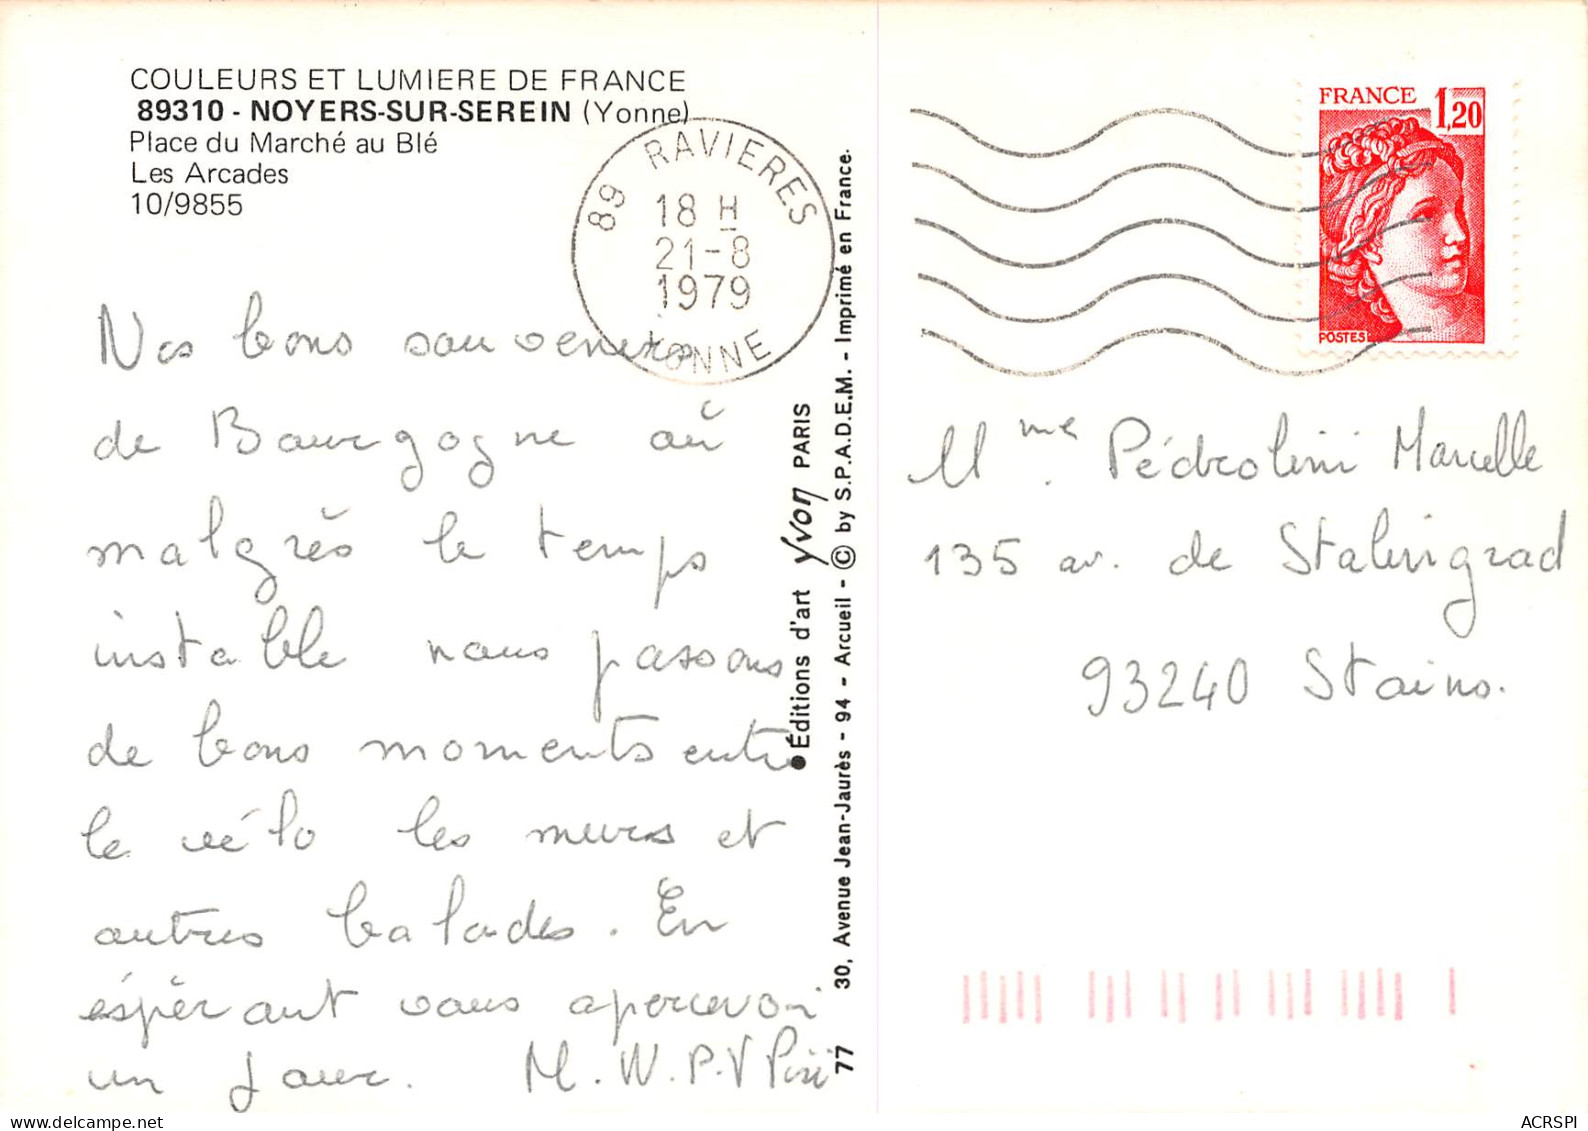 COULEURS ET LUMIERE DE FRANCE
89310 - NOYERS-SUR-SEREIN (Yonne)
Place du Marché au Blé
Les Arcades
10/9855
89 RAVIERES
18 H
21-8
1979
YONNE
FRANCE 1,20
POSTES
Nos bons souvenirs
de Bourgogne où
malgrès le temps
instable nous passons
de bons moments entre
le vélo les murs et
autres balades. En
éspèrant vous apercevoir
un jour. M. W. P. V
Mme Pédrolini Marcelle
135 av. de Stalingrad
93240 Stains.
Éditions d'art yvon PARIS
30, Avenue Jean-Jaurès - 94 - Arcueil - © by S.P.A.D.E.M. - Imprimé en France.
77
delcampe.net
ACRSPI